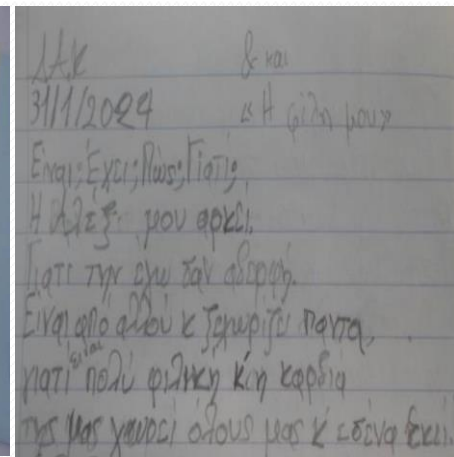 ΔΑΚ & και
31/1/2024 «Η φίλη μου»
Είναι; Έχει; Πώς; Γιατί;
Η Αλέξ. μου αρκεί.
Γιατί την έχω σαν αδερφή.
Είναι από αλλού κ ξεχωρίζει πάντα,
γιατί είναι πολύ φιλική κ' η καρδιά
της μας χωρεί όλους μας κ' εσένα εκεί.